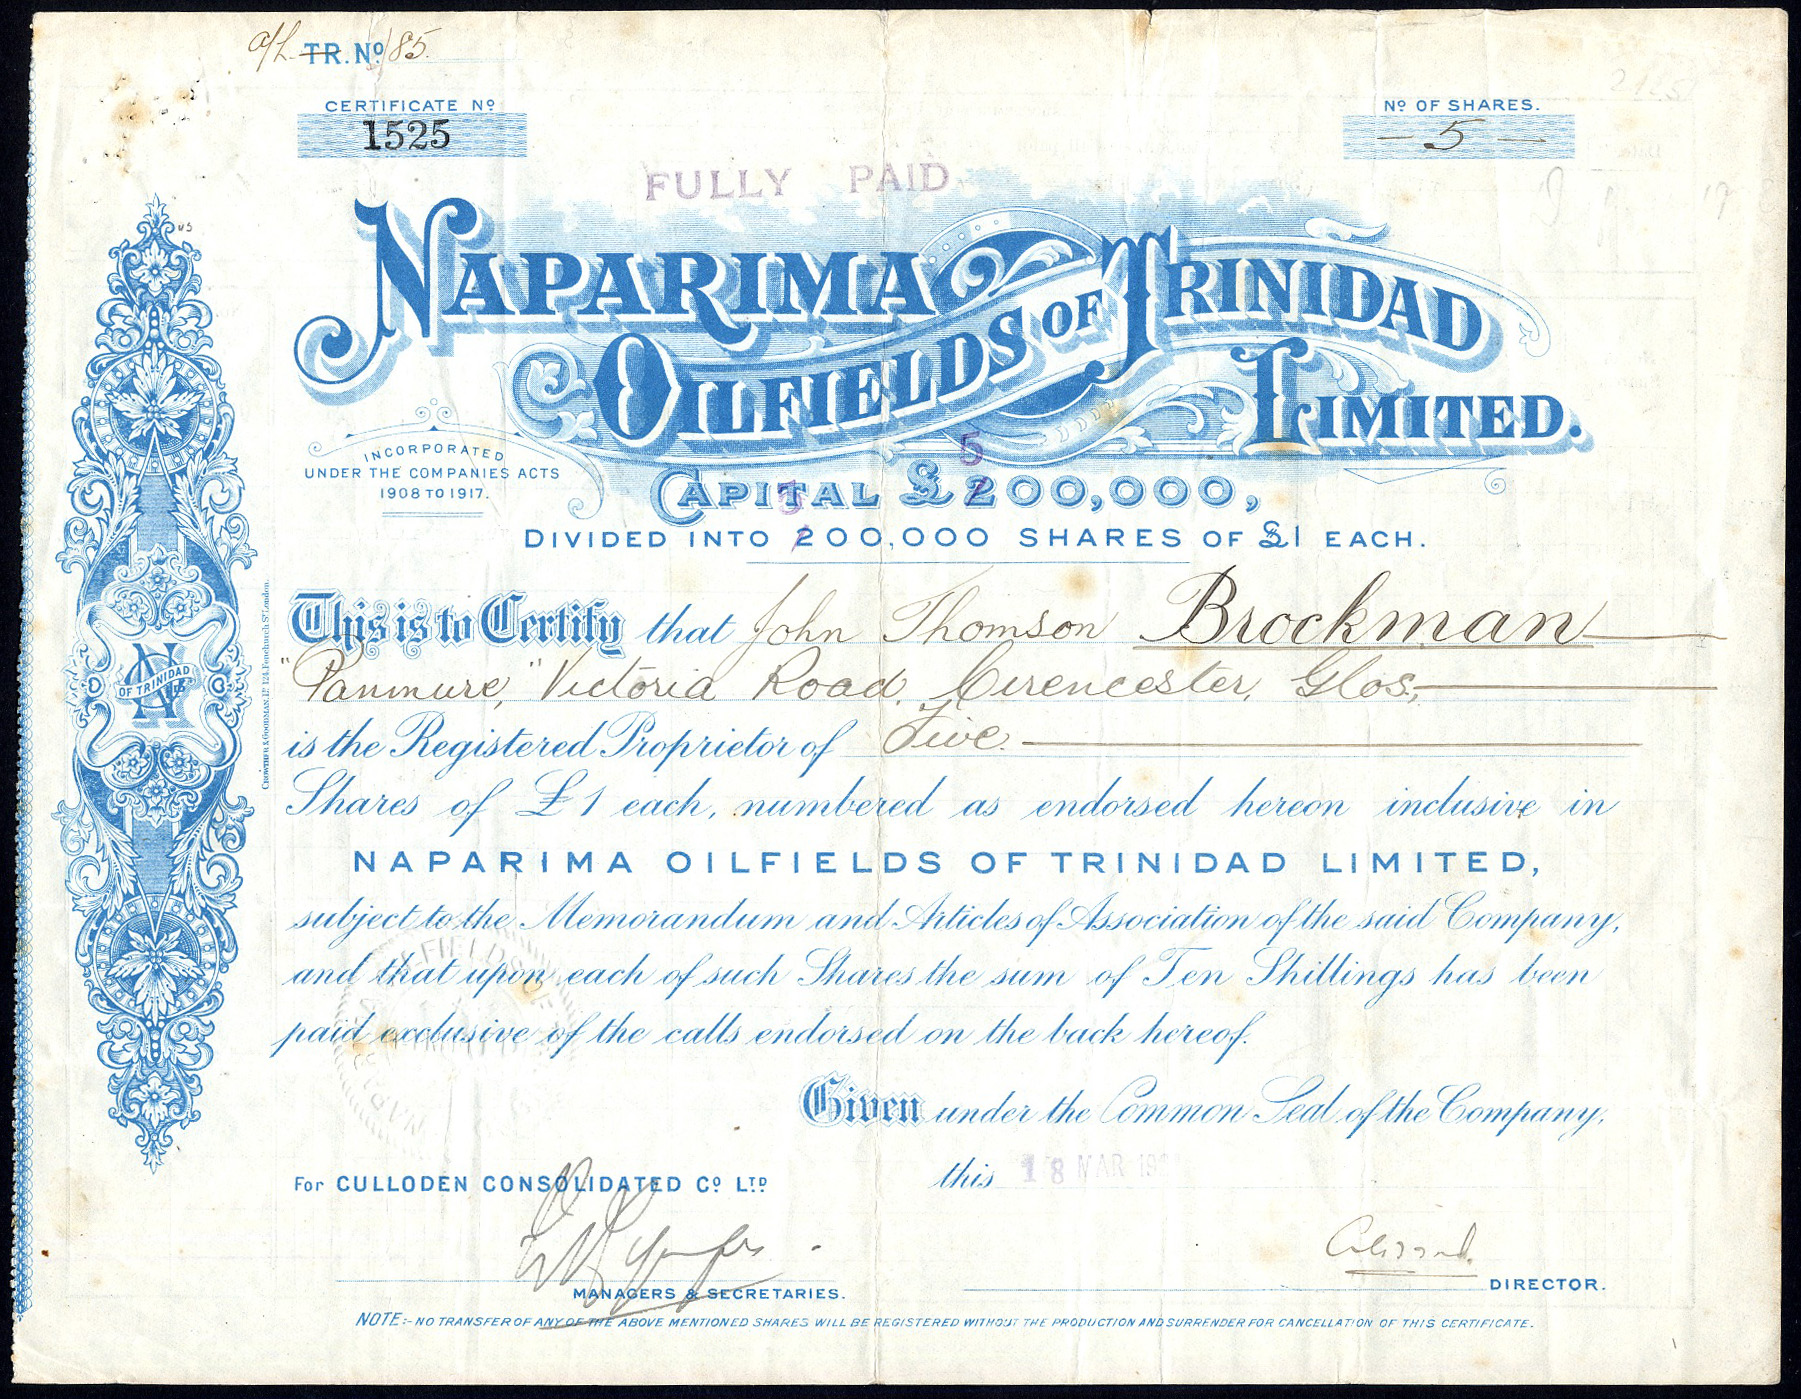 a/L TR. Nº 185.
CERTIFICATE Nº
1525
Nº OF SHARES.
— 5 —
FULLY PAID
NAPARIMA
OILFIELDS OF TRINIDAD
LIMITED.
INCORPORATED
UNDER THE COMPANIES ACTS
1908 TO 1917.
5
CAPITAL £200,000,
5
DIVIDED INTO 200,000 SHARES OF £1 EACH.
This is to Certify that John Thomson Brockman
"Panmure," Victoria Road, Cirencester, Glos.,
is the Registered Proprietor of Five.
Shares of £1 each, numbered as endorsed hereon inclusive in
NAPARIMA OILFIELDS OF TRINIDAD LIMITED,
subject to the Memorandum and Articles of Association of the said Company,
and that upon each of such Shares the sum of Ten Shillings has been
paid exclusive of the calls endorsed on the back hereof.
Given under the Common Seal of the Company,
this 18 MAR
For CULLODEN CONSOLIDATED Cº LTD
MANAGERS & SECRETARIES.
DIRECTOR.
NOTE:- NO TRANSFER OF ANY OF THE ABOVE MENTIONED SHARES WILL BE REGISTERED WITHOUT THE PRODUCTION AND SURRENDER FOR CANCELLATION OF THIS CERTIFICATE.
OF TRINIDAD
LTD
CROWTHER & GOODMAN, LD. 124, Fenchurch St London.